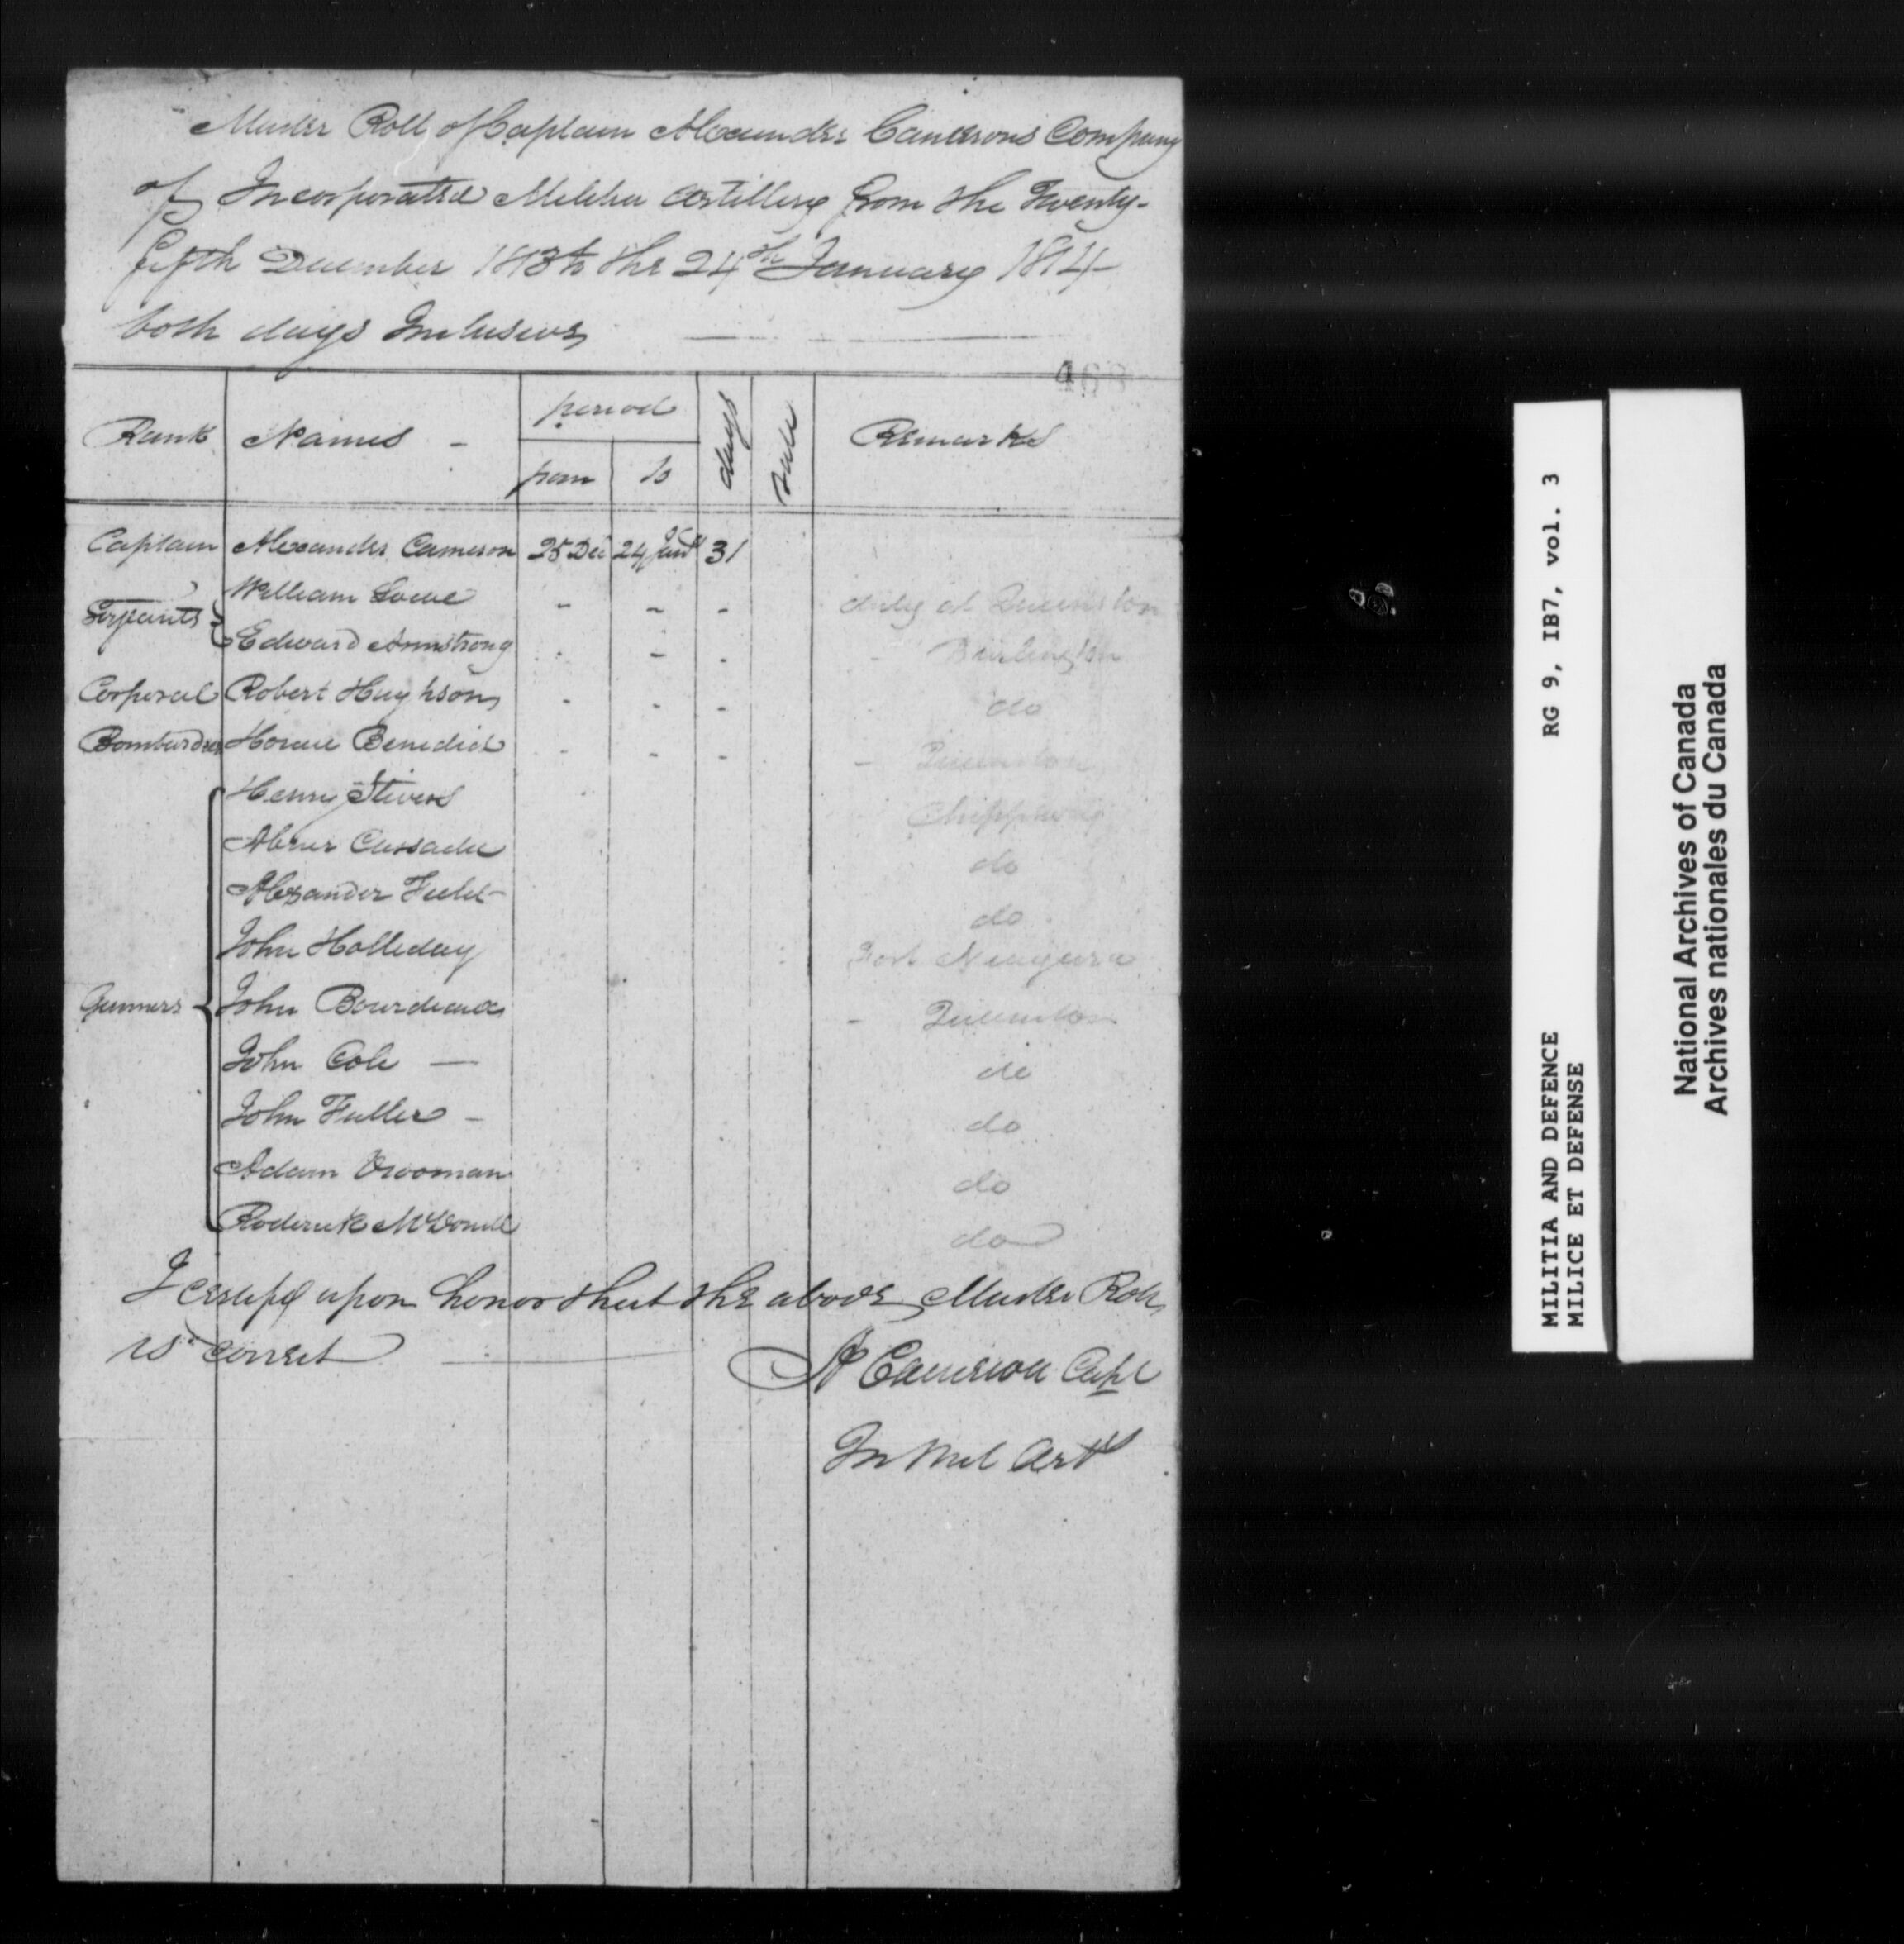 Muster Roll of Captain Alexander Camerons Company
of Incorporated Militia Artillery from the Twenty-
fifth December 1813 to the 24th January 1814
both days Inclusive
Rank Names - period days Remarks
from to
Captain Alexander Cameron 25 Dec 24 Jany 31
Serjeants William Lowe - - - duty at Queenston
Edward Armstrong - - - - Burlington
Corporal Robert Hughson - - - do
Bombardier Benedict - - - - Queenston
Gunners
Henry Stivens Chippaway
Abner do
Alexander Field - do
John Holliday Fort Niagara
John Bourdeaux - Queenston
John Cole - do
John Fuller - do
Adam Vrooman do
Roderick McDonell do
I certify upon honor that the above Muster Roll
is correct
A Cameron Capt
In Mil Arty
MILITIA AND DEFENCE RG 9, IB7, vol. 3
MILICE ET DEFENSE
National Archives of Canada
Archives nationales du Canada